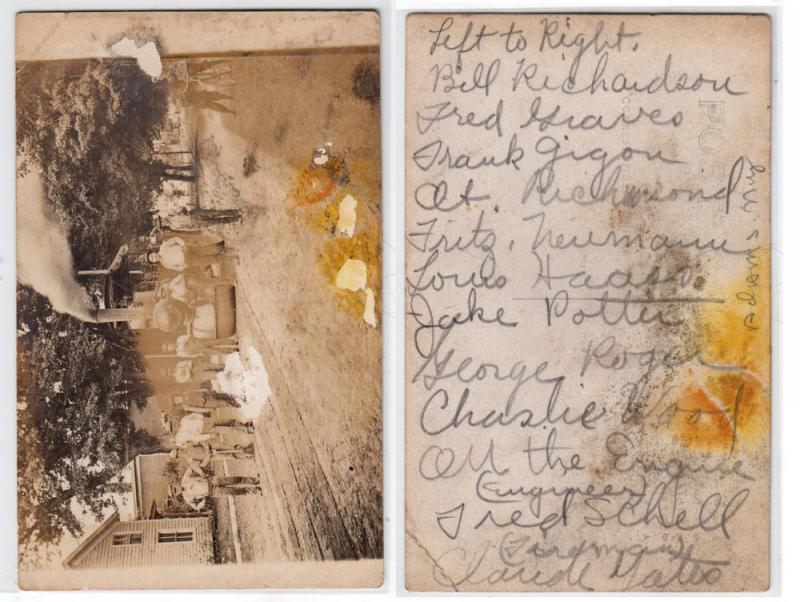 Left to Right.
Bill Richardson
Fred Graves
Frank Gigon
At. Richmond
Fritz. Neumann
Louis Haass.
Jake Potter
George Roger
Charlie Wood
On the Engine
(Engineer)
Fred Schell
(Fireman)
Claude Yates
PO